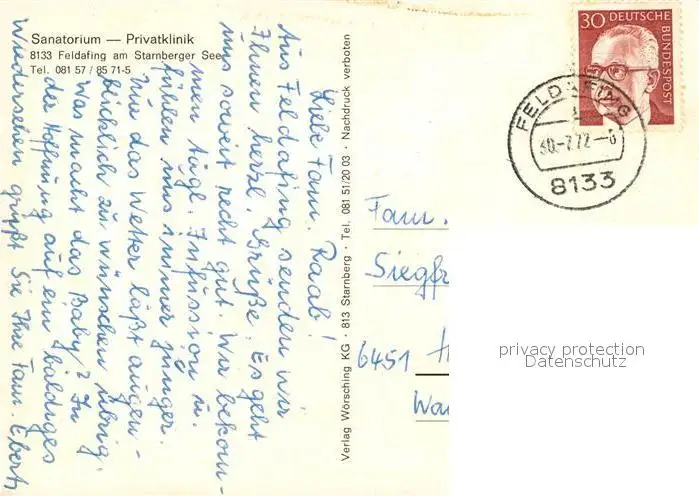 Sanatorium — Privatklinik
8133 Feldafing am Starnberger See
Tel. 081 57 / 85 71-5
Liebe Fam. Raab!
Aus Feldafing senden wir
Ihnen herzl. Grüße. Es geht
uns soweit recht gut. Wir bekom-
men tägl. Infussion u.
fühlen uns immer jünger.
Nur das Wetter läßt augen-
blicklich zu wünschen übrig.
Was macht das Baby? In
der Hoffnung auf ein baldiges
Wiedersehen grüßt Sie Ihre Fam. Ebert
Verlag Wörsching KG · 813 Starnberg · Tel. 081 51/20 03 · Nachdruck verboten
30 DEUTSCHE
BUNDESPOST
FELDAFING
30.-7.72-
8133
Fam.
Siegfr
6451
privacy protection
Datenschutz